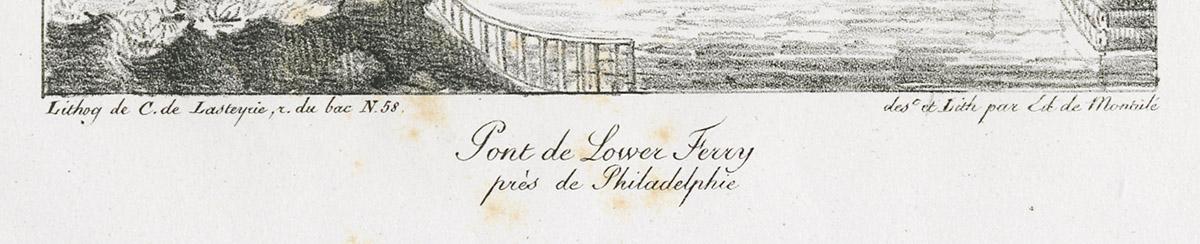 Lithog de C. de Lasteyrie, r. du bac N. 58.
des.ᵉ et Lith par Ed. de Montulé
Pont de Lower Ferry
près de Philadelphie